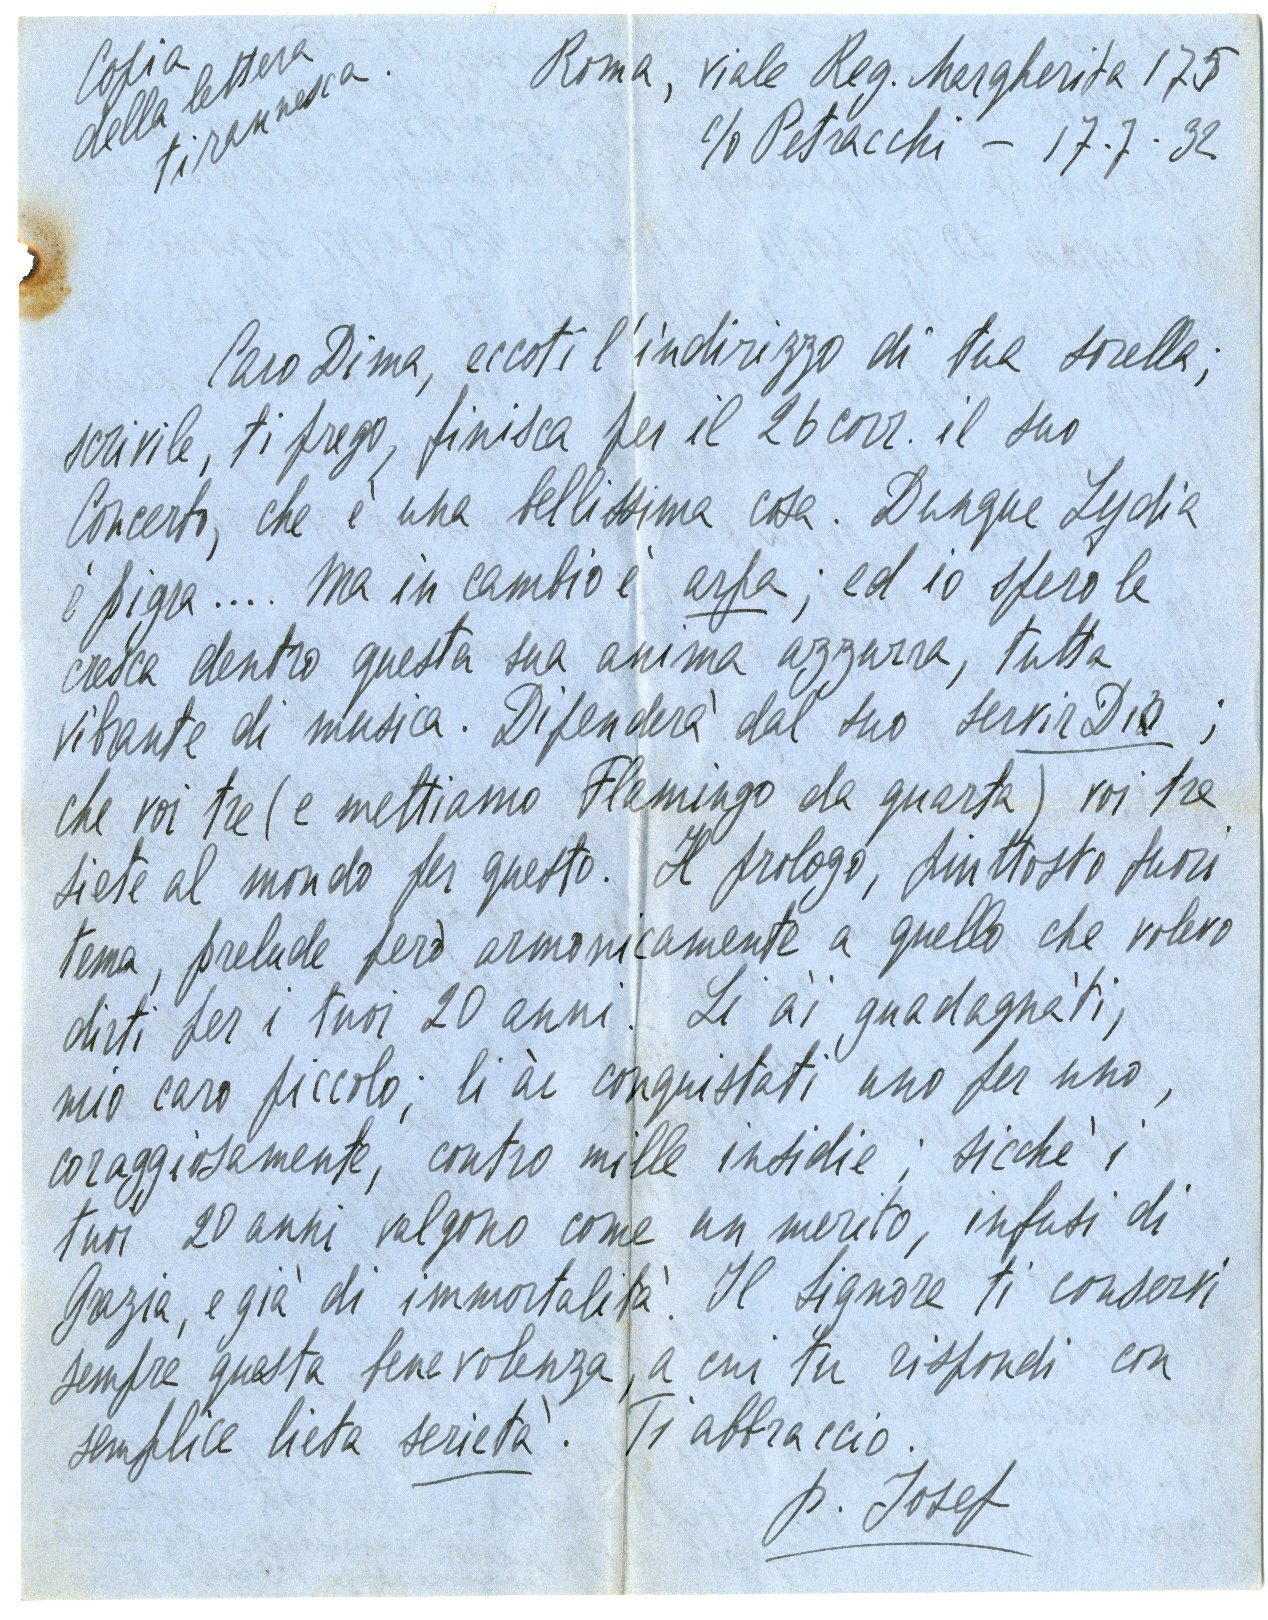 Copia
della lettera
tirannesca.
Roma, viale Reg. Margherita 175
c/o Petracchi – 17.7.32
Caro Dima, eccoti l'indirizzo di tua sorella;
scrivile, ti prego, finisca per il 26 corr. il suo
Concerto, che è una bellissima cosa. Dunque Lydia
è pigra.... Ma in cambio è arpa; ed io spero le
cresca dentro questa sua anima azzurra, tutta
vibrante di musica. Dipenderà dal suo servir Dio;
che voi tre (e mettiamo Flamingo da quarta) voi tre
siete al mondo per questo. Il prologo, piuttosto fuori
tema, prelude però armonicamente a quello che volevo
dirti per i tuoi 20 anni. Li ài guadagnàti,
mio caro piccolo; li ài conquistati uno per uno,
coraggiosamente, contro mille insidie; sicchè i
tuoi 20 anni valgono come un merito, infusi di
Grazia, e già di immortalità. Il Signore ti conservi
sempre questa benevolenza, a cui tu rispondi con
semplice lieta serietà. Ti abbraccio.
p. Josef